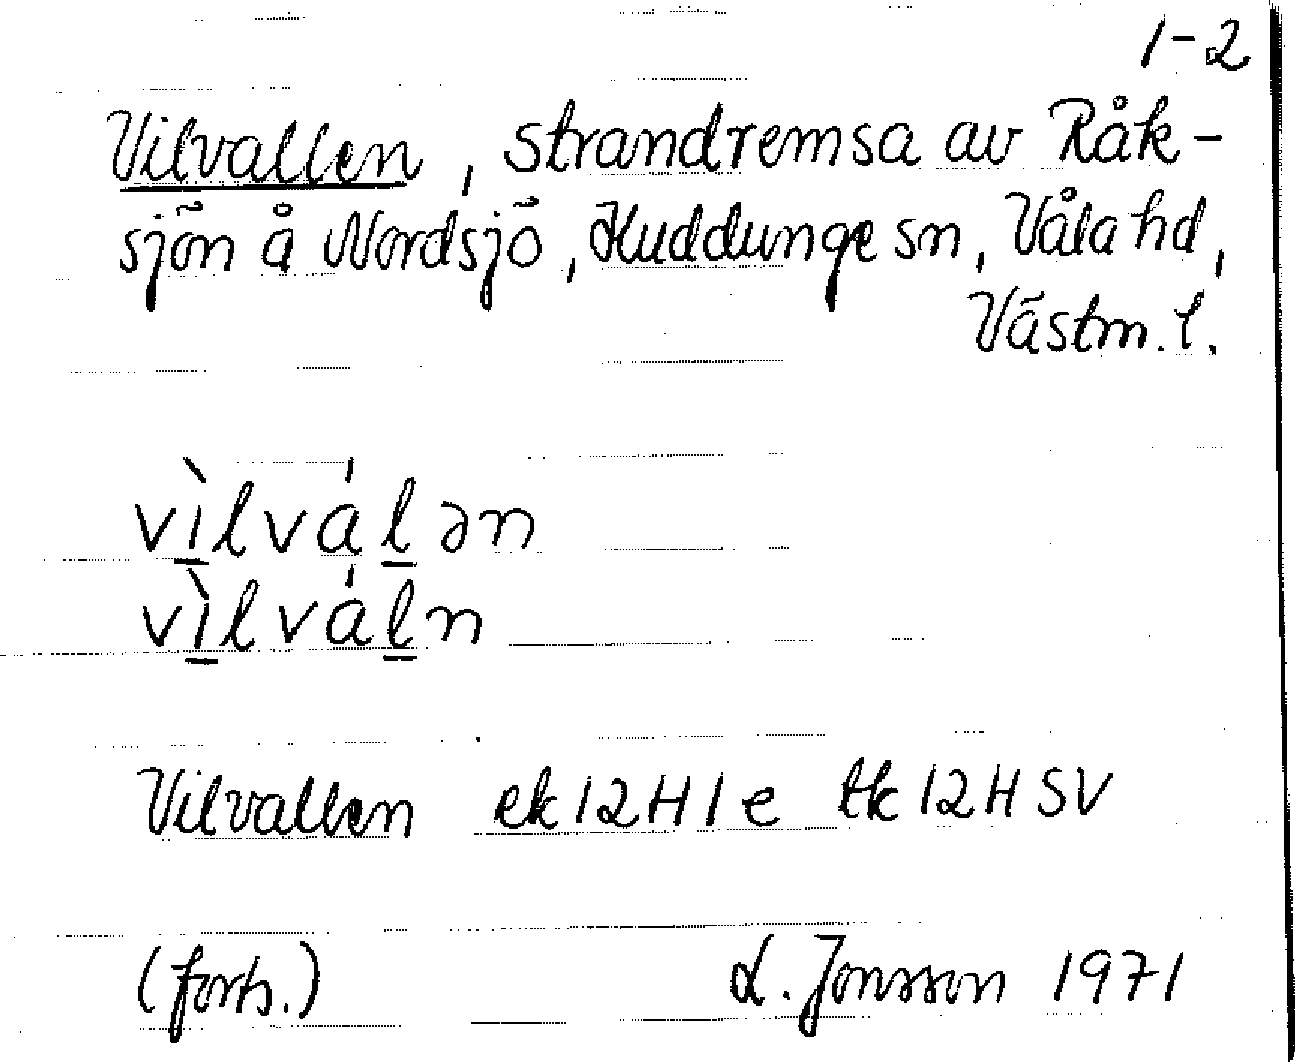 1-2
Vilvallen, strandremsa av Råk-
sjön å Nordsjö, Huddunge sn, Våla hd,
Västm. l.
vìlválən
vìlváln
Vilvallen ek 12H 1e tk 12H SV
(forts.) L. Jonsson 1971